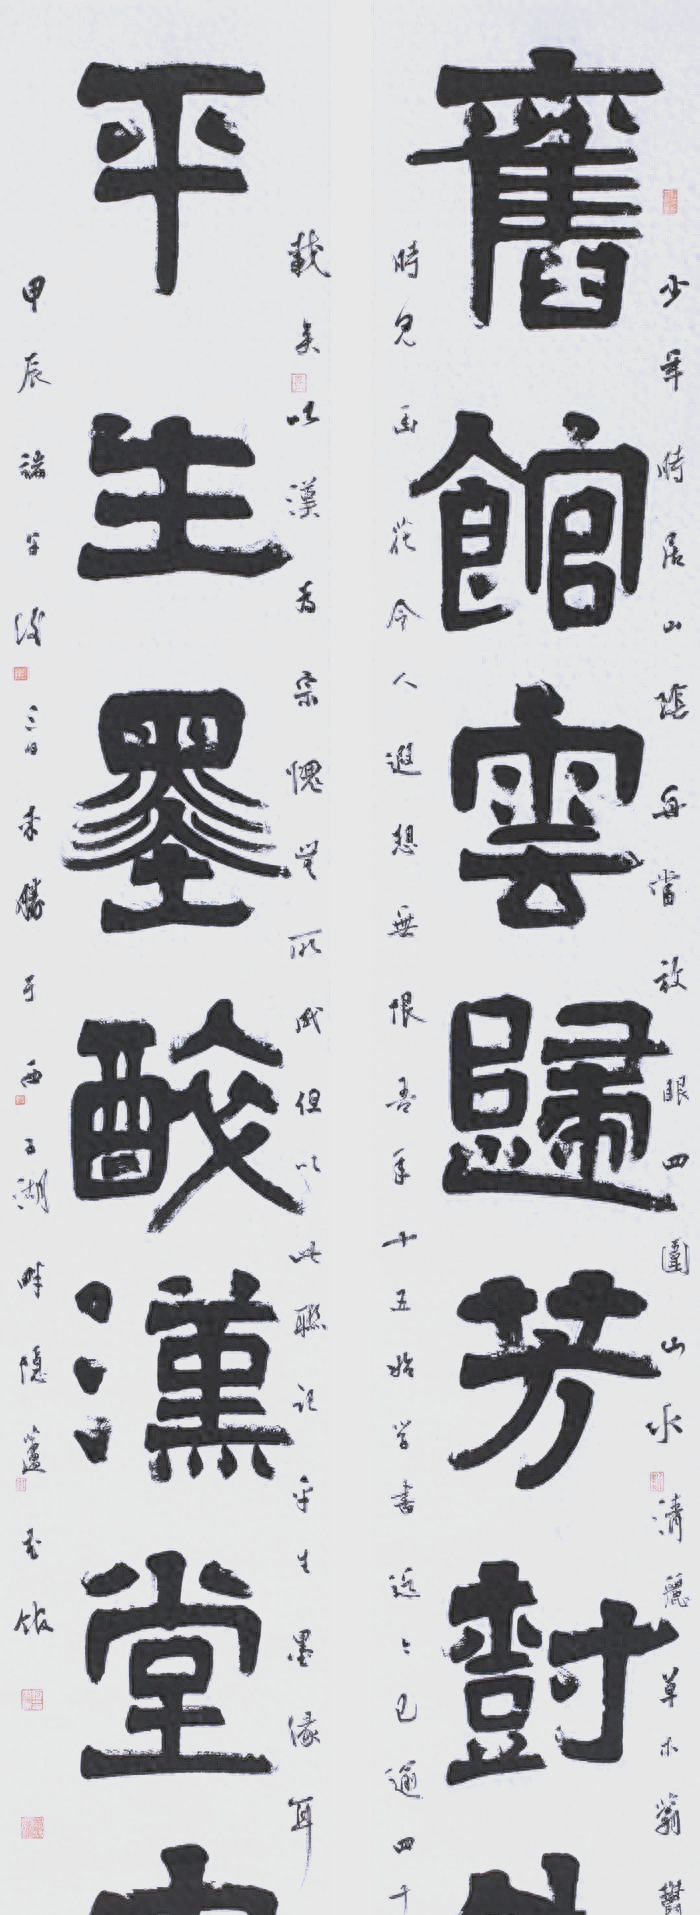 舊館雲歸芳樹
少年時居山陰每當放眼四圍山水清麗草木蓊鬱
時見花令人遐想無恨吾年十五始学書迄今已逾四十
平生墨醉漢堂
載矣以漢為宗愧無所成但以此聯記平生墨緣耳
甲辰端午後三日來勝于西子湖畔隱廬